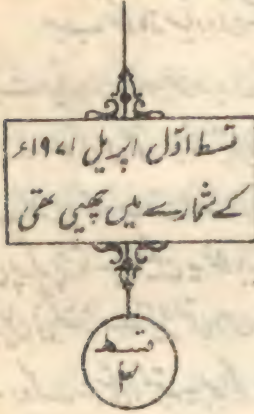 قسط اوّل اپریل ۱۹۷۱ء
کے شمارے میں چھپی تھی
قسط
۳